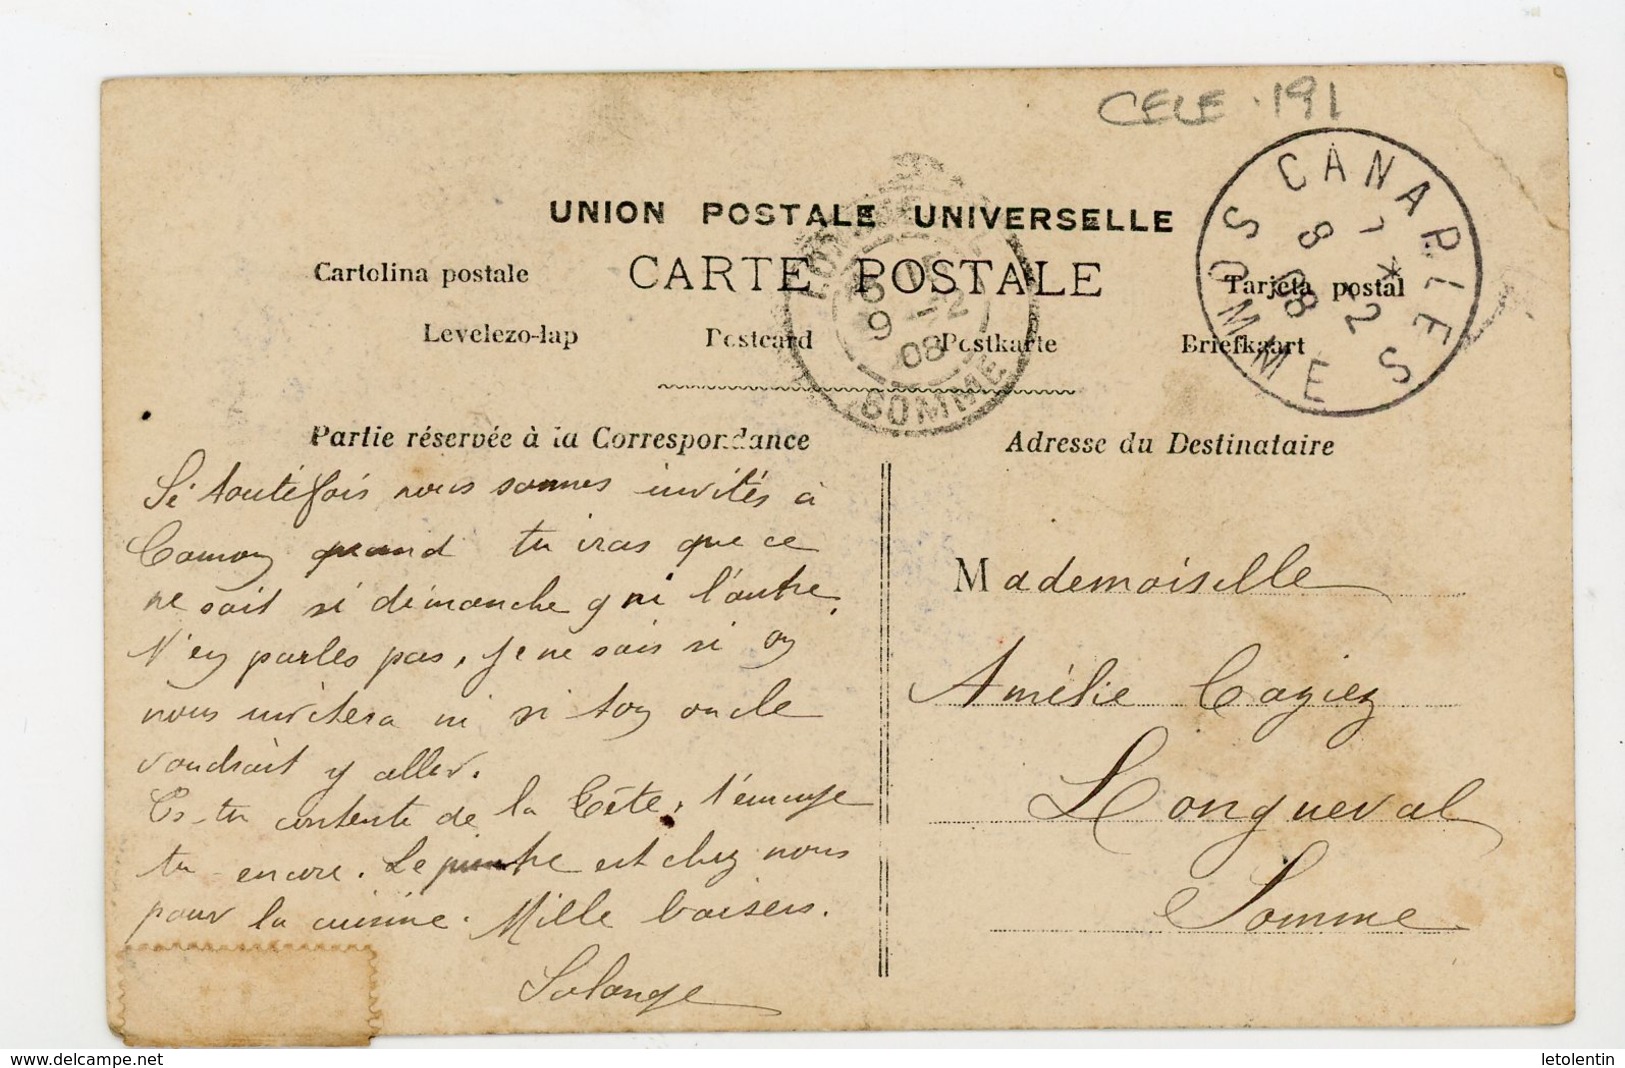 CELE 191
UNION POSTALE UNIVERSELLE
CANAPLES
SOMME
7 * 
8 -2
08
Cartolina postale
CARTE POSTALE
Tarjeta postal
9 -2
08
SOMME
Levelezo-lap
Postcard
Postkarte
Briefkaart
Partie réservée à la Correspondance
Adresse du Destinataire
Si toutefois nous sommes invités à
quand tu iras que ce
ne soit si dimanche q ni l'autre.
N'en parles pas, je ne sais si on
nous invitera ni si ton oncle
voudrait y aller.
Es-tu contente de la fête, t'ennuye
tu encore. Le peintre est chez nous
pour la cuisine. Mille baisers.
Solange
Mademoiselle
Amélie Caziez
Longueval
Somme
www.delcampe.net
letolentin